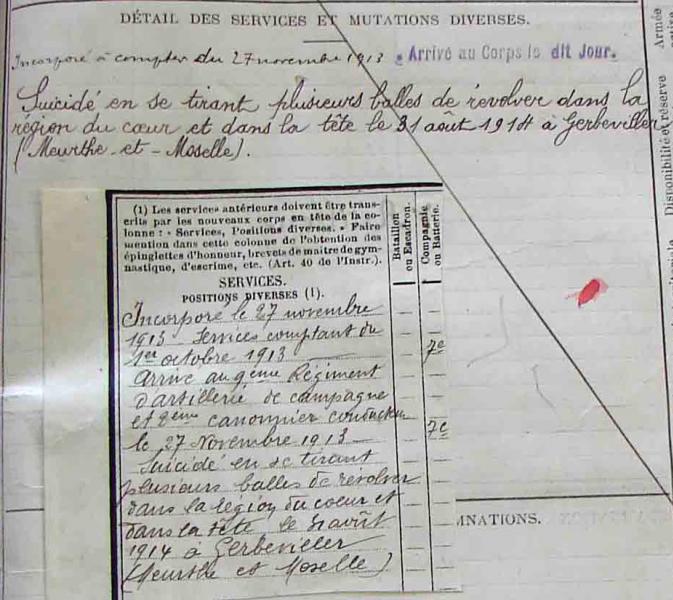 DÉTAIL DES SERVICES ET MUTATIONS DIVERSES.
Incorporé à compter du 27 novembre 1913 Arrivé au Corps le dit Jour.
Suicidé en se tirant plusieurs balles de revolver dans la
région du cœur et dans la tête le 31 août 1914 à Gerbeviller
(Meurthe-et-Moselle).
(1) Les services antérieurs doivent être trans-
crits par les nouveaux corps en tête de la co-
lonne : « Services, Positions diverses. » Faire
mention dans cette colonne de l'obtention des
épinglettes d'honneur, brevets de maitre de gym-
nastique, d'escrime, etc. (Art. 40 de l'Instr.).
SERVICES.
POSITIONS DIVERSES (1).
Bataillon
ou Escadron.
Compagnie
ou Batterie.
Incorporé le 27 novembre
1913 Services comptant du
1er octobre 1913 7e
Arrivé au 9ème Régiment
d'artillerie de campagne
et 2ème canonnier conducteur
le 27 Novembre 1913 7e
Suicidé en se tirant
plusieurs balles de revolver
dans la région du coeur et
dans la tête le 31 août
1914 à Gerbeviller
(Meurthe et Moselle)
MNATIONS.
Armée
Disponibilité et réserve